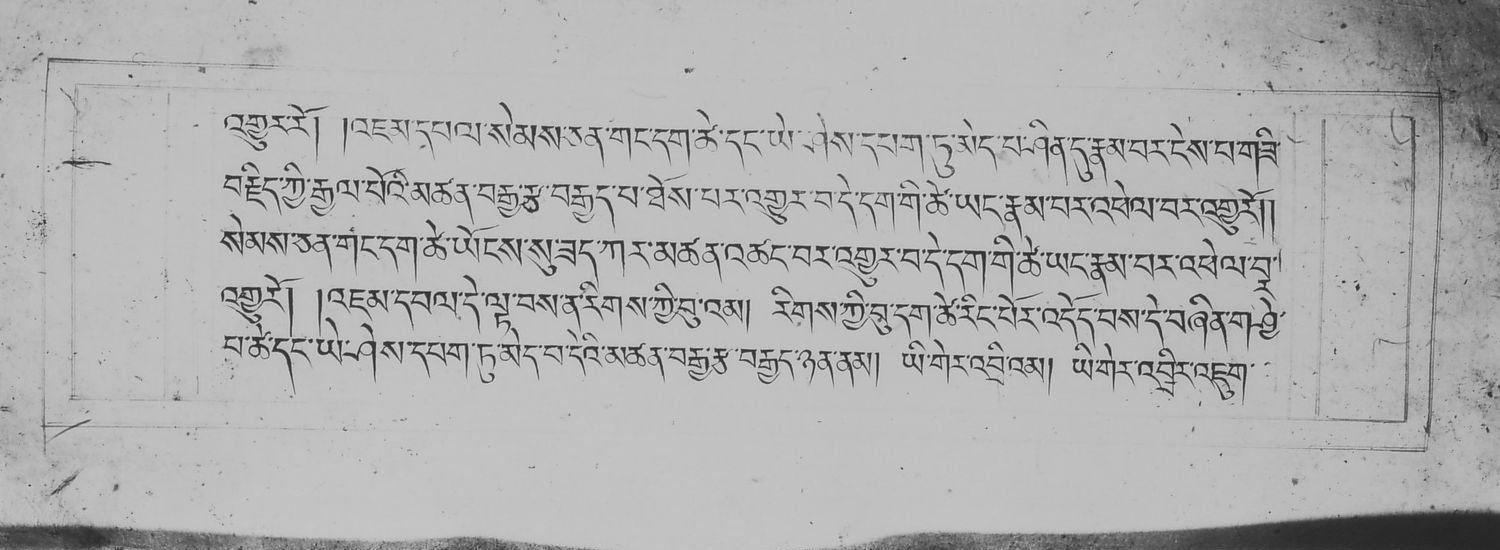 འགྱུར་རོ། །འཇམ་དཔལ་སེམས་ཅན་གང་དག་ཚེ་དང་ཡེ་ཤེས་དཔག་ཏུ་མེད་པ་ཤིན་ཏུ་རྣམ་པར་ངེས་པ་གཟི་
བརྗིད་ཀྱི་རྒྱལ་པོའི་མཚན་བརྒྱ་རྩ་བརྒྱད་པ་ཐོས་པར་འགྱུར་བ་དེ་དག་གི་ཚེ་ཡང་རྣམ་པར་འཕེལ་བར་འགྱུརོ།།
སེམས་ཅན་གང་དག་ཚེ་ཡོངས་སུ་ཟད་ཀར་མཚན་འཚང་བར་འགྱུར་བ་དེ་དག་གི་ཚེ་ཡང་རྣམ་པར་འཕེལ་བར་
འགྱུརོ། །འཇམ་དཔལ་དེ་ལྟ་བས་ན་རིགས་ཀྱི་བུ་འམ། རིགས་ཀྱི་བུ་དག་ཚེ་རིང་པོར་འདོད་པས་དེ་བཞིན་གཤེ་
པ་ཚེ་དང་ཡེ་ཤེས་དཔག་ཏུ་མེད་པ་དེའི་མཚན་བརྒྱ་རྩ་བརྒྱད་ཉན་ནམ། ཡི་གེར་འབྲི་འམ། ཡི་གེར་འབྲིར་འཇུག་